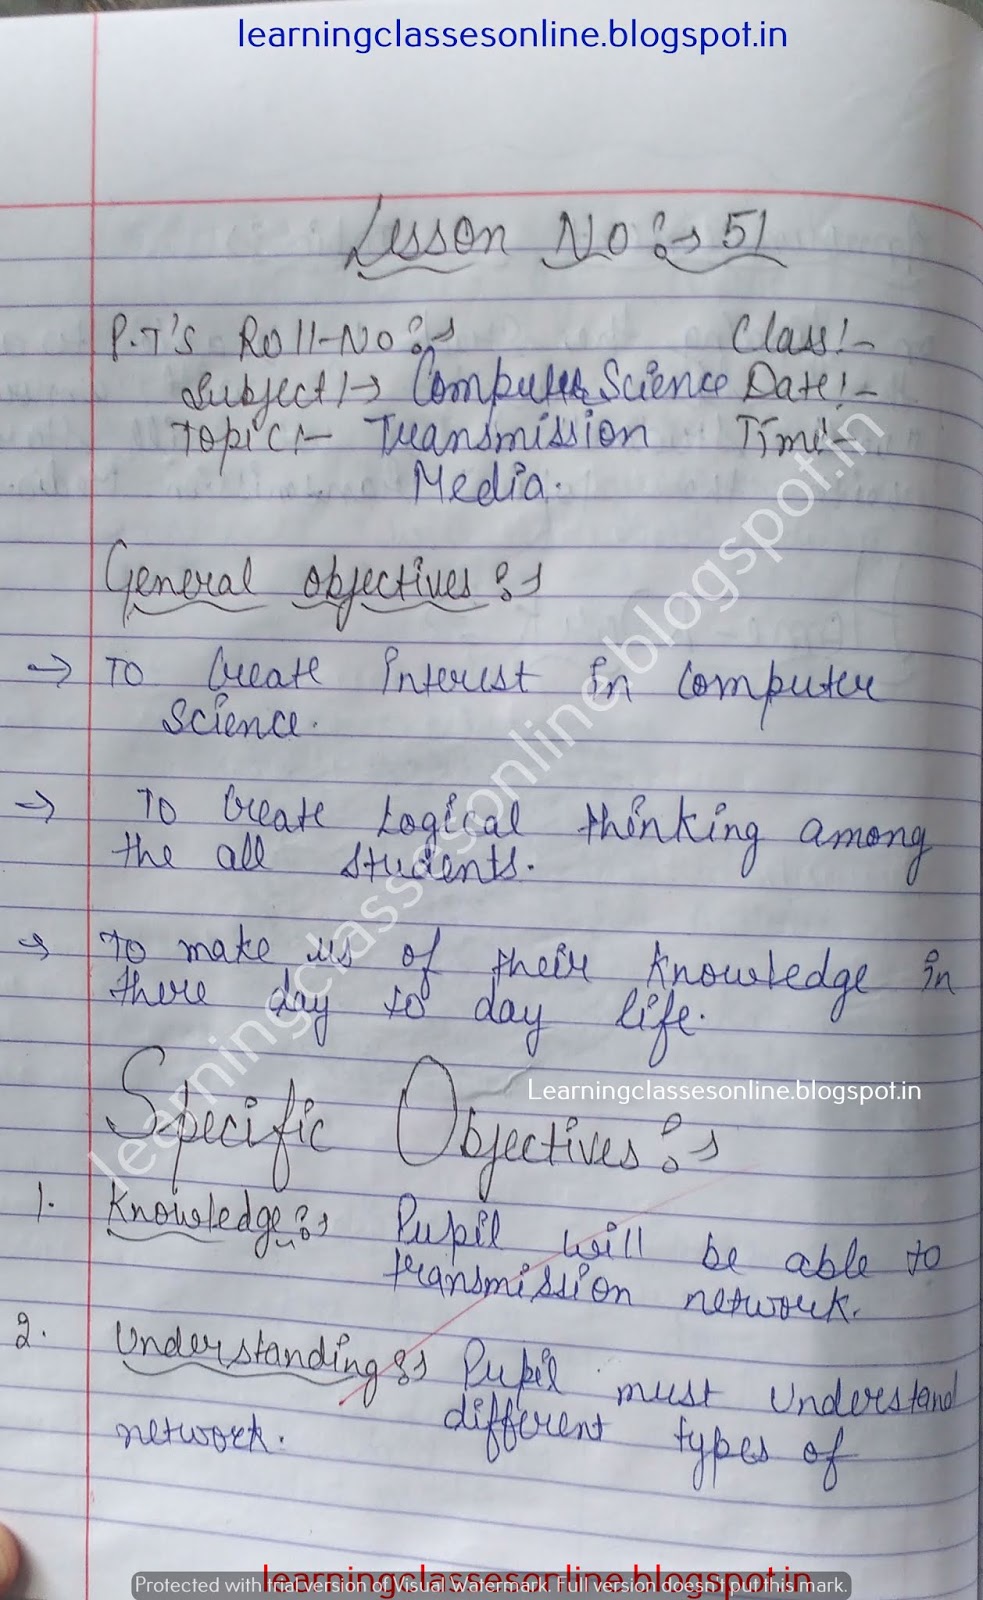 learningclassesonline.blogspot.in
Lesson No:→ 51
P.T's Roll-No:→ Class:-
Subject:→ Computer Science Date:-
Topic:- Transmission Time:-
Media.
General objectives:→
→ To Create interest in Computer
Science.
→ To Create Logical thinking among
the all students.
→ To make us of their knowledge in
there day to day life.
Learningclassesonline.blogspot.in
Specific Objectives:→
1. Knowledge:→ Pupil will be able to
transmission network.
2. Understanding:→ Pupil must understand
different types of
network.
learningclassesonline.blogspot.in
learningclassesonline.blogspot.in
Protected with trial version of Visual Watermark. Full version doesn't put this mark.